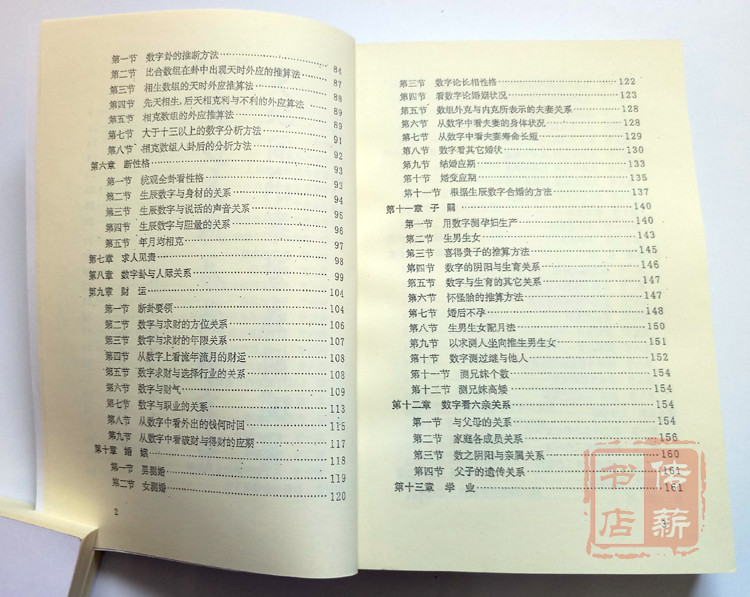 第一节 数字卦的推断方法 84
第二节 比合数组在卦中出现天时外应的推算法 86
第三节 相生数组的天时外应推算法 87
第四节 先天相生,后天相克利与不利的外应算法 88
第五节 相克数组的外应推算法 89
第七节 大于十三以上的数字分析方法 89
第八节 相克数组入卦后的分析方法 90
第六章 断性格 91
第一节 统观全卦看性格 91
第二节 生辰数字与身材的关系 94
第三节 生辰数字与说话的声音关系 95
第四节 生辰数字与胆量的关系 96
第五节 年月均相克 97
第七章 求人见贵 98
第八章 数字卦与人际关系 99
第九章 财 运 104
第一节 断卦要领 104
第二节 数字与求财的方位关系 106
第三节 数字与求财的年限关系 108
第四节 从数字上看流年流月的财运 108
第五节 数字求财与选择行业的关系 108
第六节 数字与财气 109
第七节 数字与职业的关系 113
第八节 从数字中看外出的几何时回 115
第九节 从数字中看破财与得财的应期 117
第十章 婚 姻 118
第一节 男测婚 119
第二节 女测婚 120
2
第三节 数字论长相性格 122
第四节 看数字论婚姻状况 123
第五节 数组外克与内克所表示的夫妻关系 128
第六节 从数字中看夫妻的身体状况 128
第七节 从数字中看夫妻寿命长短 129
第八节 数字看其它婚状 130
第九节 结婚应期 133
第十节 婚变应期 135
第十一节 根据生辰数字合婚的方法 137
第十一章 子 嗣 140
第一节 用数字测孕妇生产 140
第二节 生男生女 143
第三节 喜得贵子的推算方法 145
第四节 数字的阴阳与生育关系 146
第五节 数字与生育的其它关系 147
第六节 怀怪胎的推算方法 147
第七节 婚后不孕 148
第八节 生男生女配月法 150
第九节 以求测人坐向推生男生女 151
第十节 数字测过继与他人 152
第十一节 测兄妹个数 154
第十二节 测兄妹高矮 154
第十二章 数字看六亲关系 154
第一节 与父母的关系 154
第二节 家庭各成员关系 156
第三节 数之阴阳与亲属关系 160
第四节 父子的遗传关系 161
第十三章 学 业 161
3
书店
薪